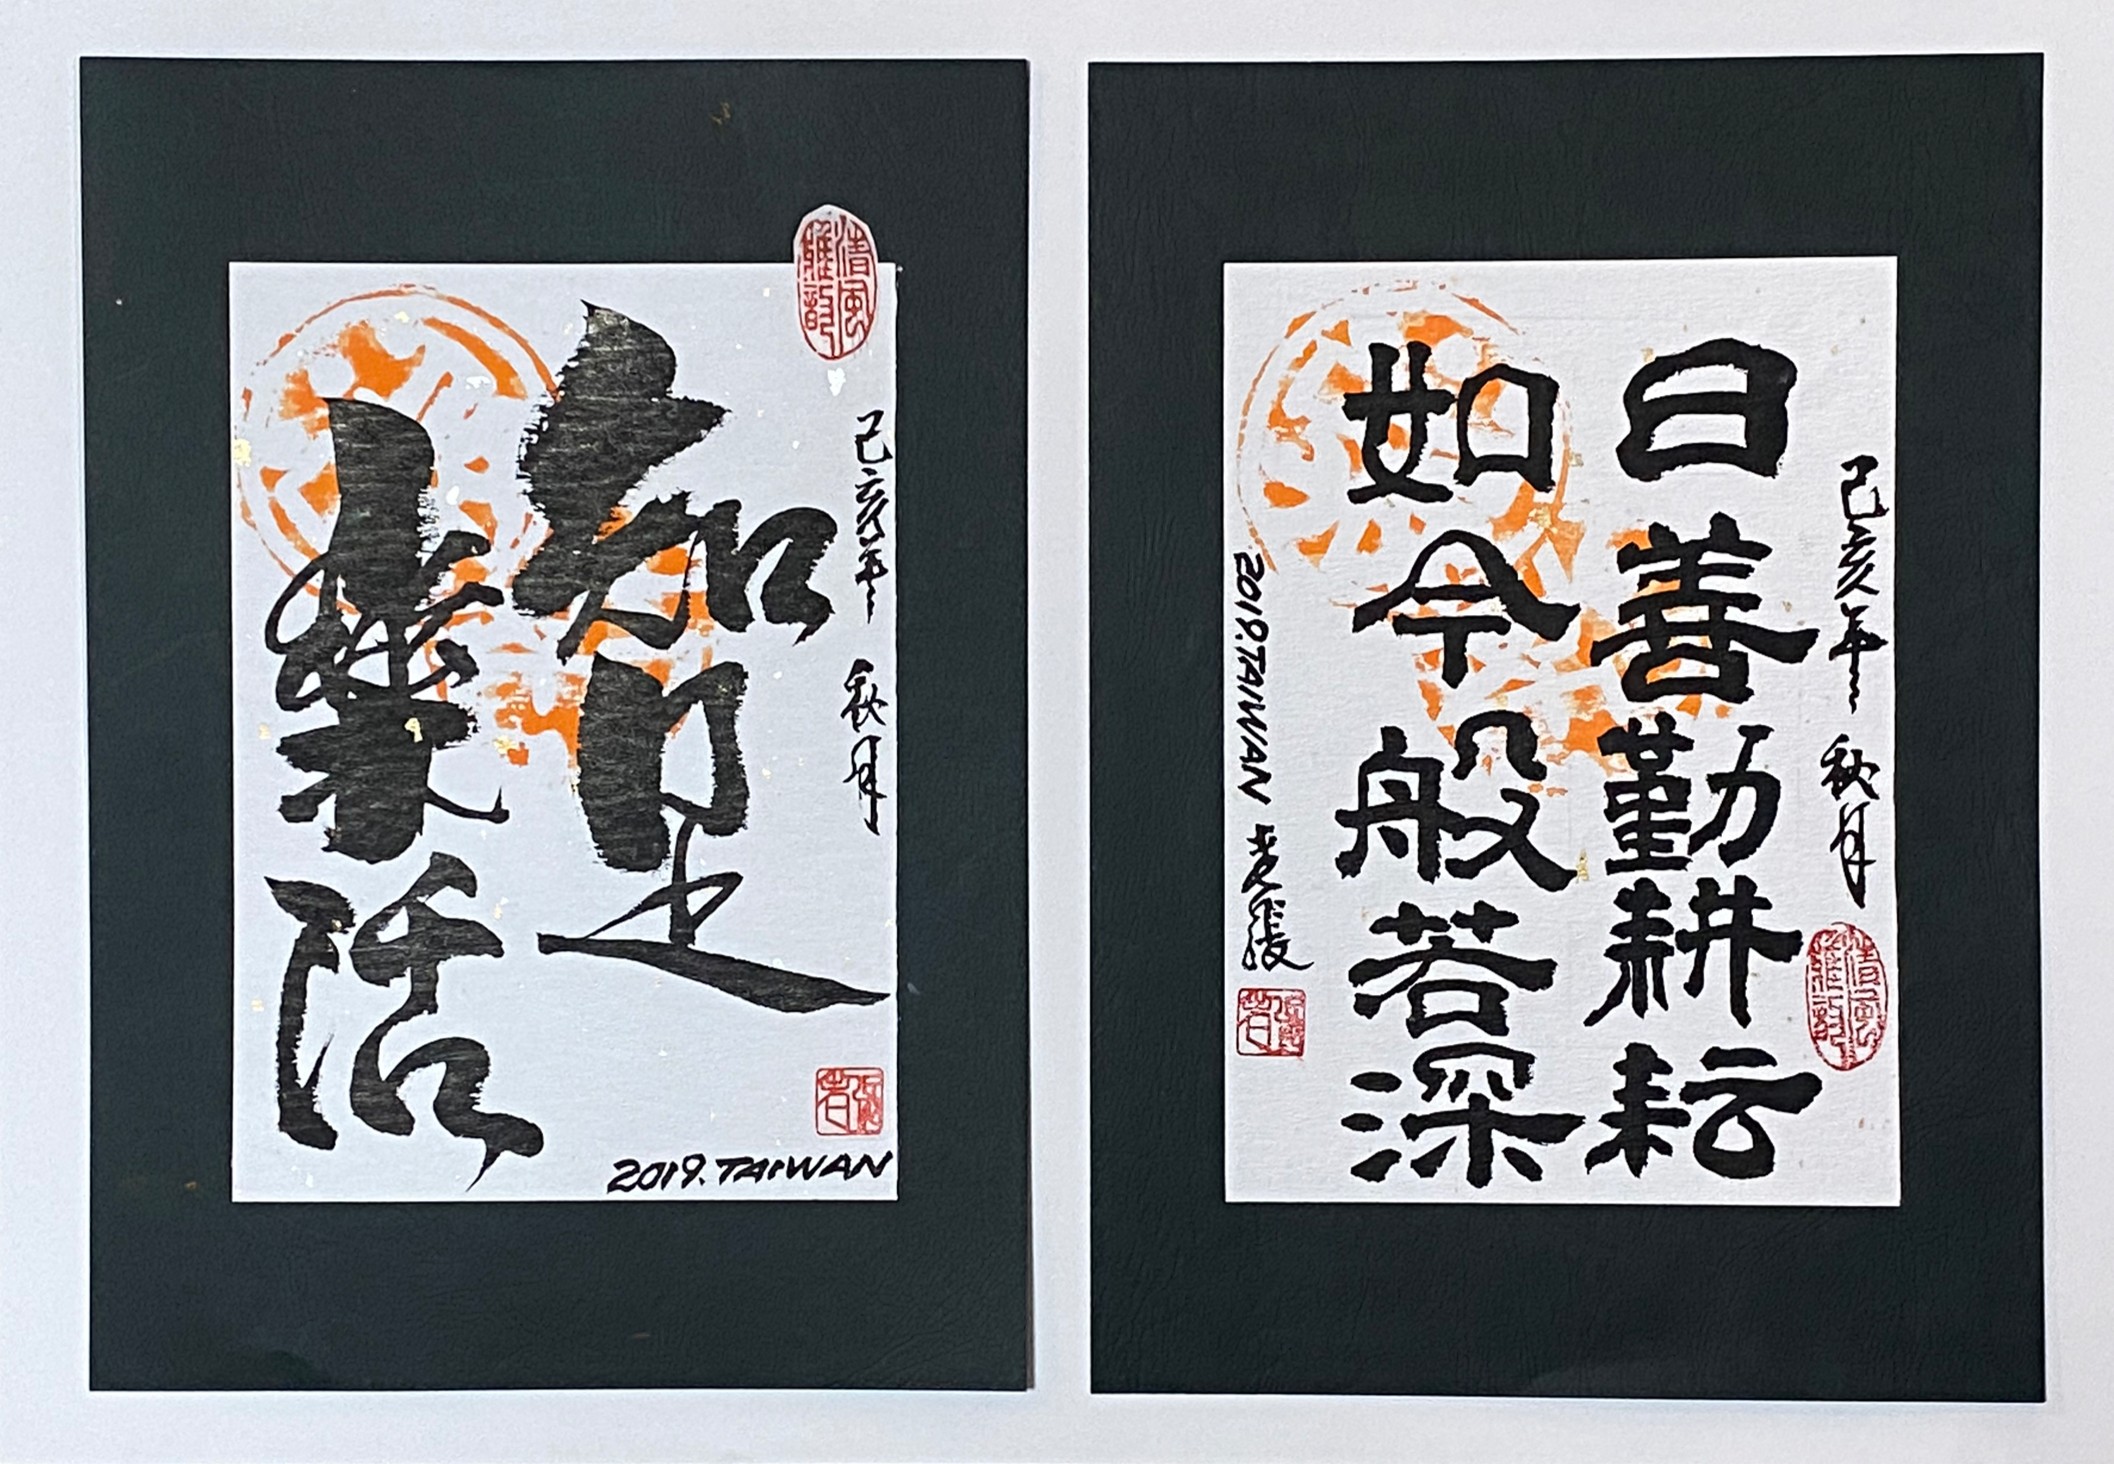 己亥年 秋月
知足
樂活
2019.TAIWAN
己亥年 秋月
日善勤耕耘
如今般若深
2019.TAIWAN